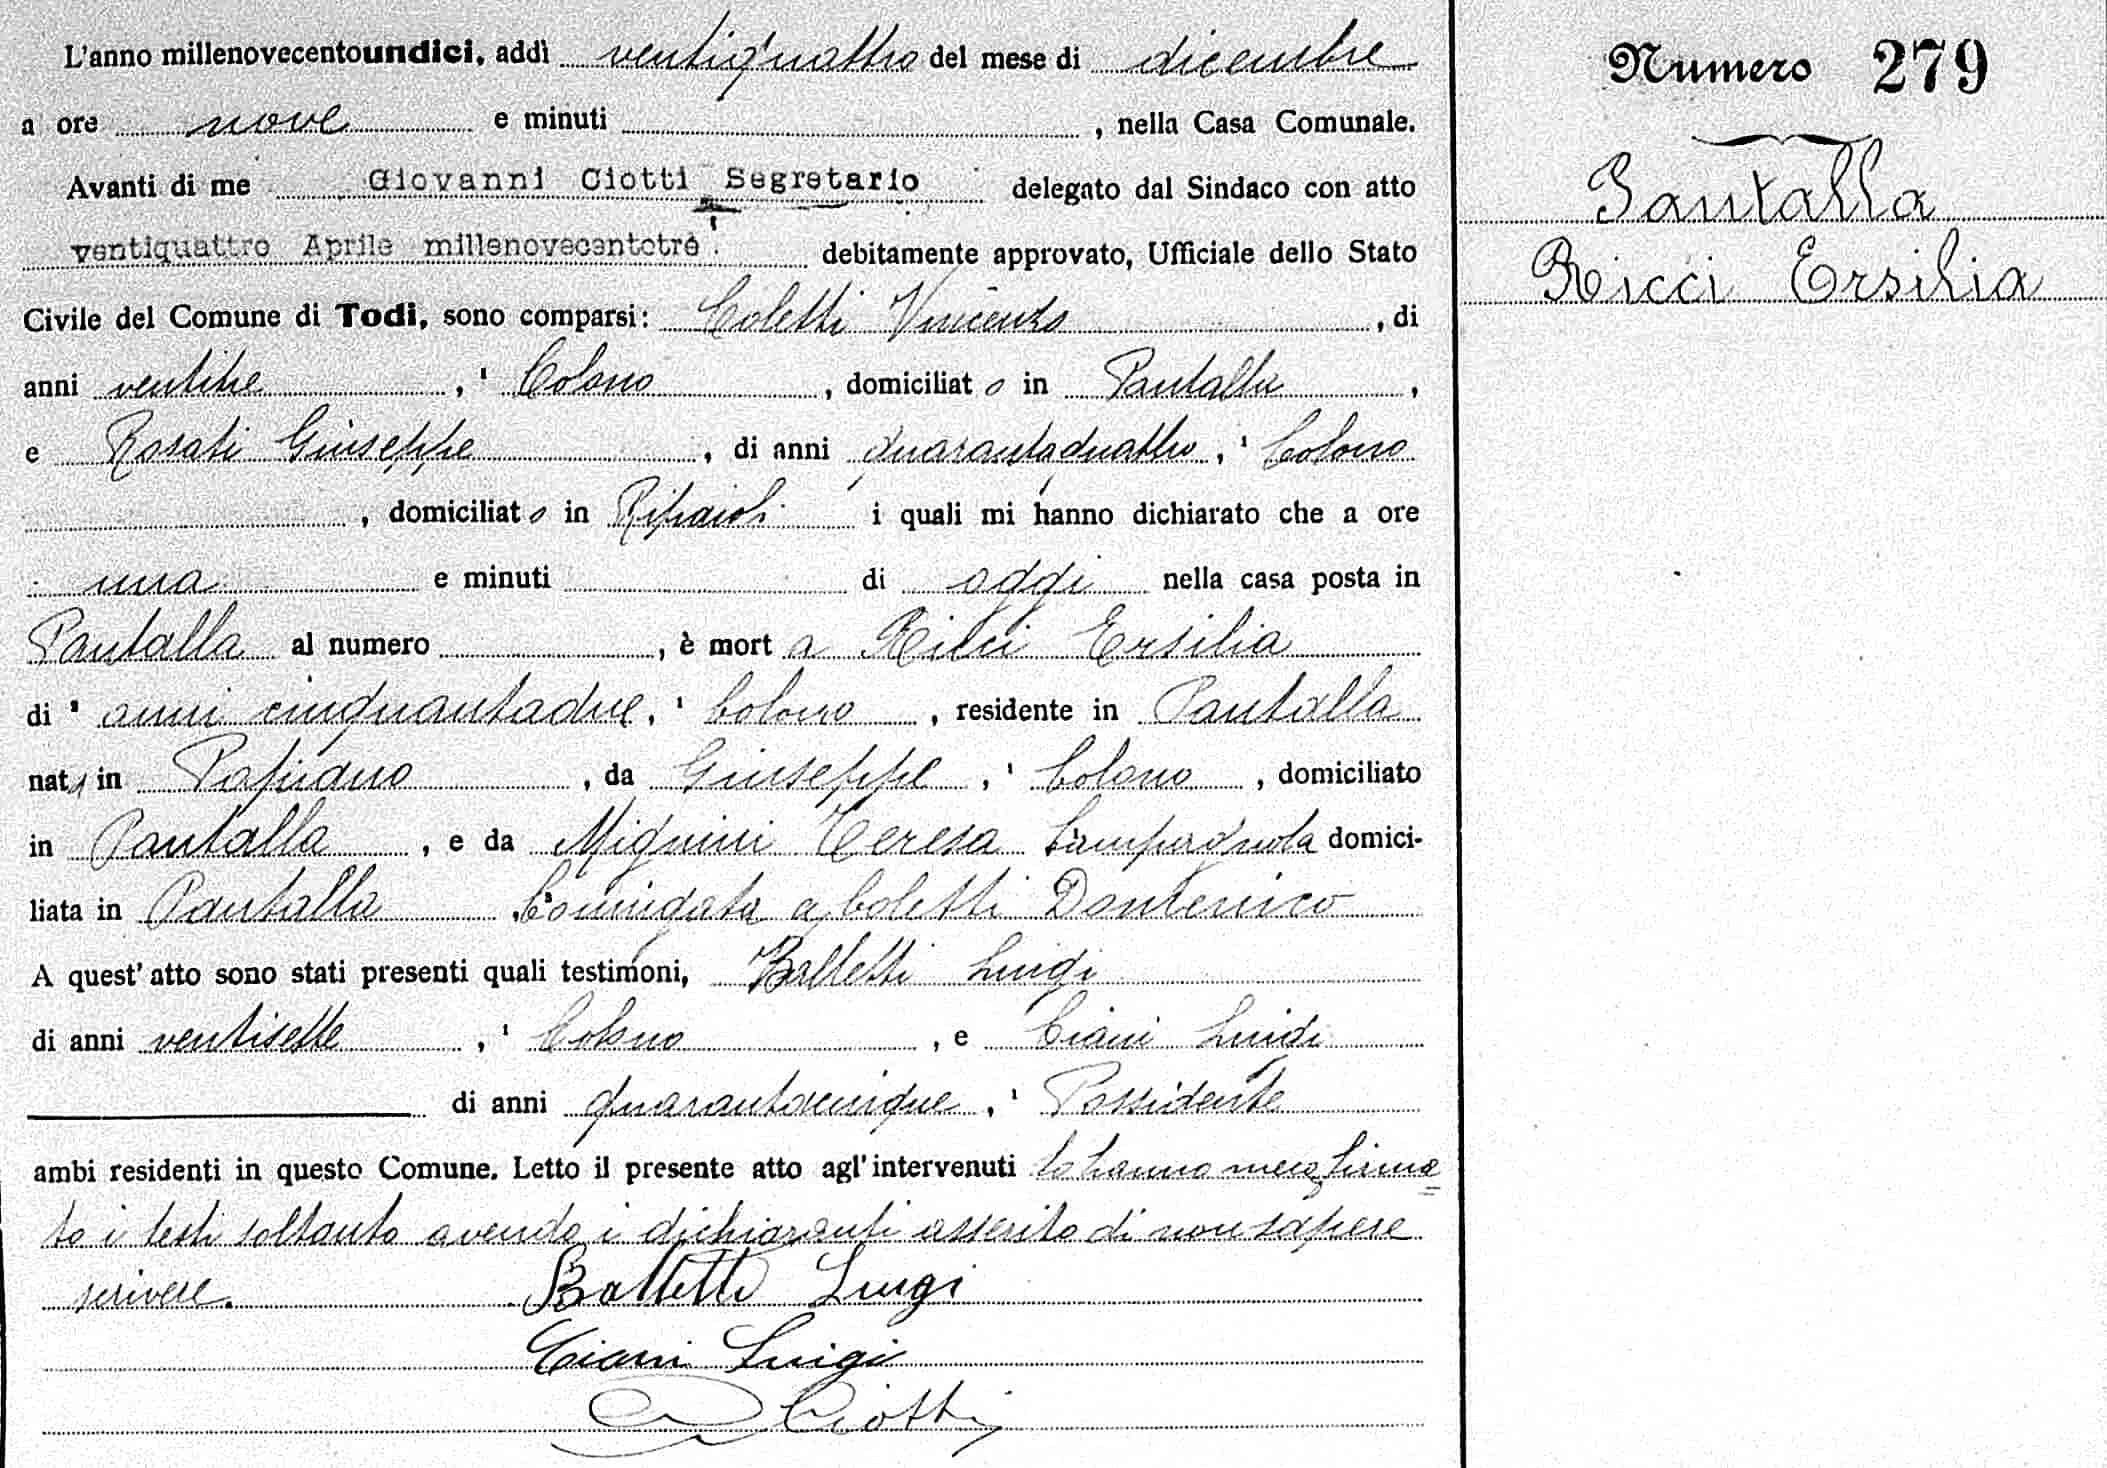 L'anno millenovecentoundici, addì ventiquattro del mese di dicembre
a ore nove e minuti , nella Casa Comunale.
Avanti di me Giovanni Ciotti Segretario delegato dal Sindaco con atto
ventiquattro Aprile millenovecentotrè. debitamente approvato, Ufficiale dello Stato
Civile del Comune di Todi, sono comparsi: Coletti Vincenzo , di
anni ventitre , Colono , domiciliato in Pantalla ,
e Rosati Giuseppe , di anni quarantaquattro , Colono
, domiciliato in Ripaioli i quali mi hanno dichiarato che a ore
una e minuti di oggi nella casa posta in
Pantalla al numero , è morta Ricci Ersilia
di anni cinquantadue, Colono , residente in Pantalla
nata in Papiano , da Giuseppe , Colono , domiciliato
in Pantalla , e da Mignini Teresa Campagnola domici-
liata in Pantalla , Coniugata a Coletti Domenico
A quest'atto sono stati presenti quali testimoni, Balletti Luigi
di anni ventisette , Colono , e Ciani Luigi
di anni quarantacinque , Possidente
ambi residenti in questo Comune. Letto il presente atto agl'intervenuti lo hanno meco firma=
to i testi soltanto avendo i dichiaranti asserito di non sapere
scrivere. Balletti Luigi
Ciani Luigi
Ciotti
Numero 279
Pantalla
Ricci Ersilia